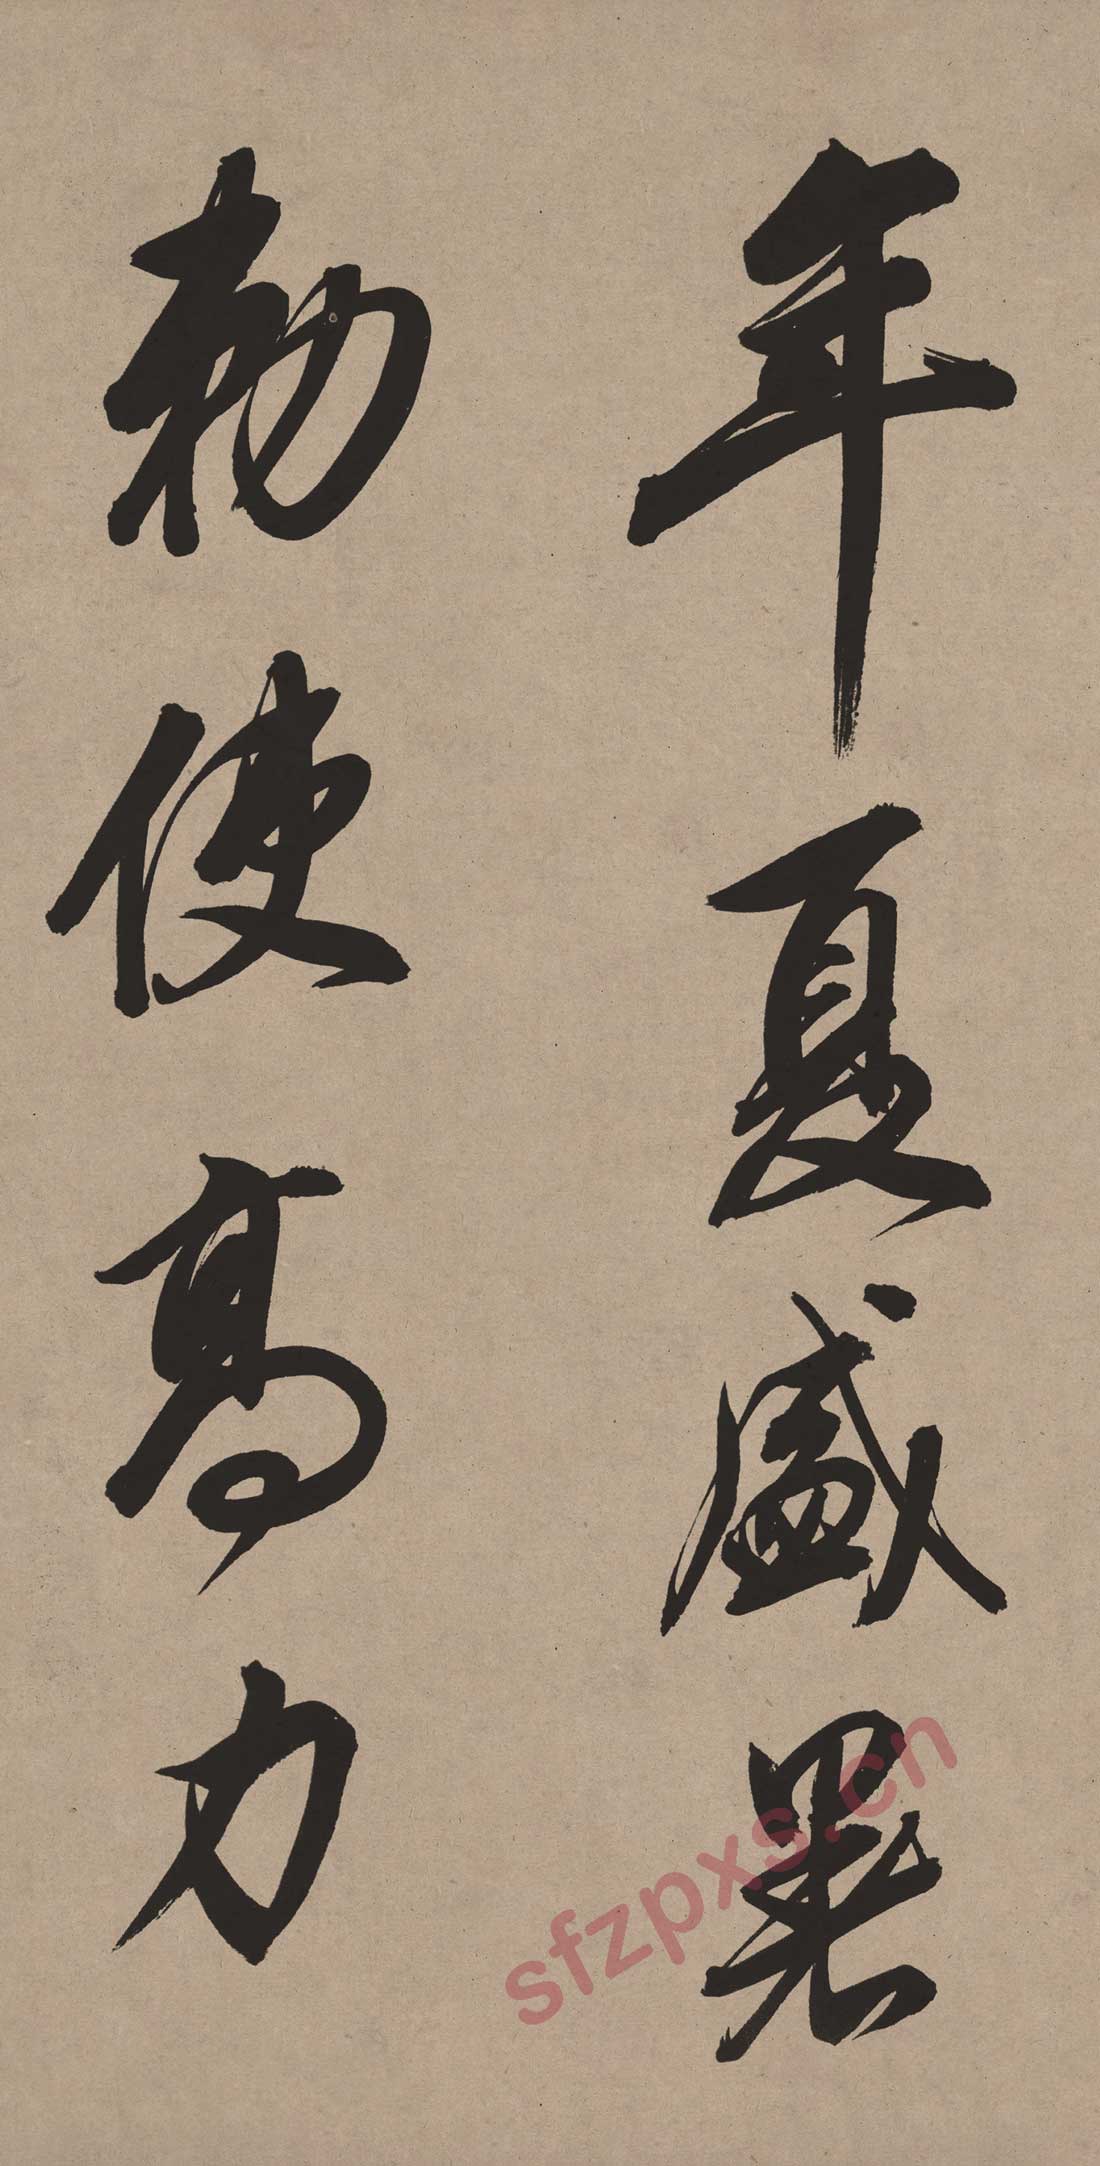 年夏盛暑
勅使高力
sfzpxs.cn